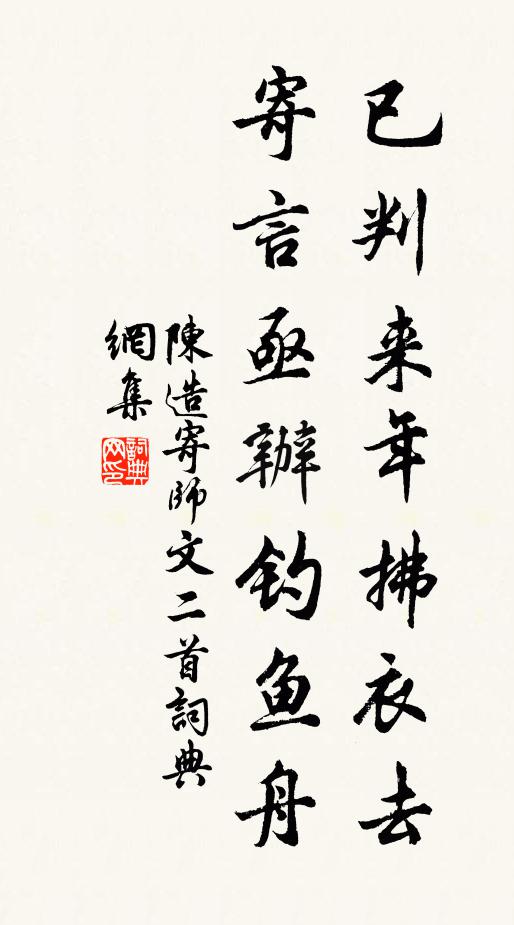 已判来年拂衣去
寄言亟辦钓鱼舟
陳造寄師文二首詞典
網集
詞典网印